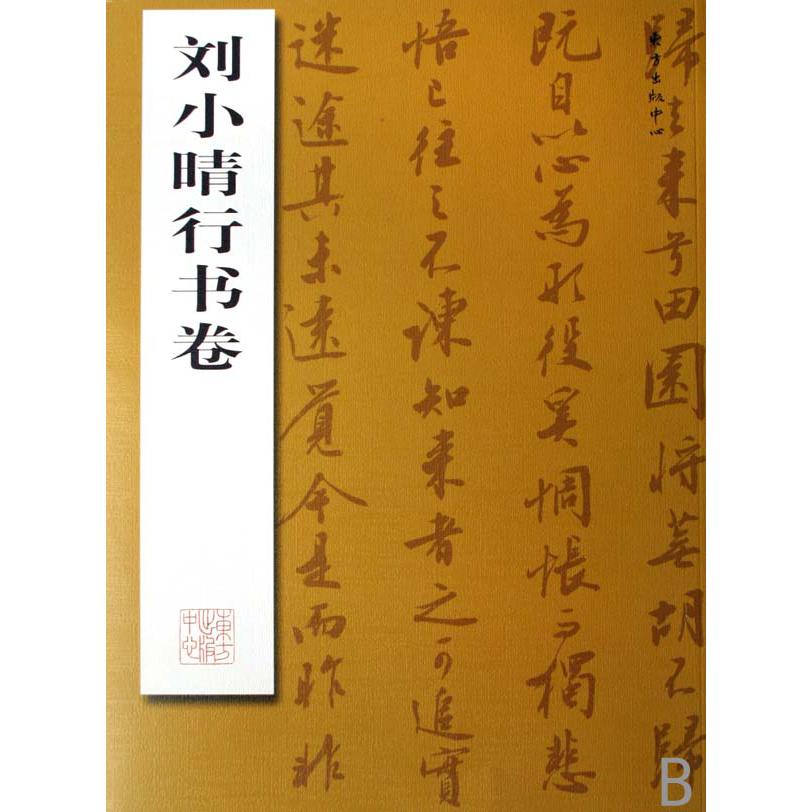 东方出版中心
歸去来兮田園将蕪胡不歸
既自以心為形役奚惆悵而獨悲
悟已往之不諫知来者之可追實
迷途其未遠覺今是而昨非
刘小晴行书卷
東方出版中心
B